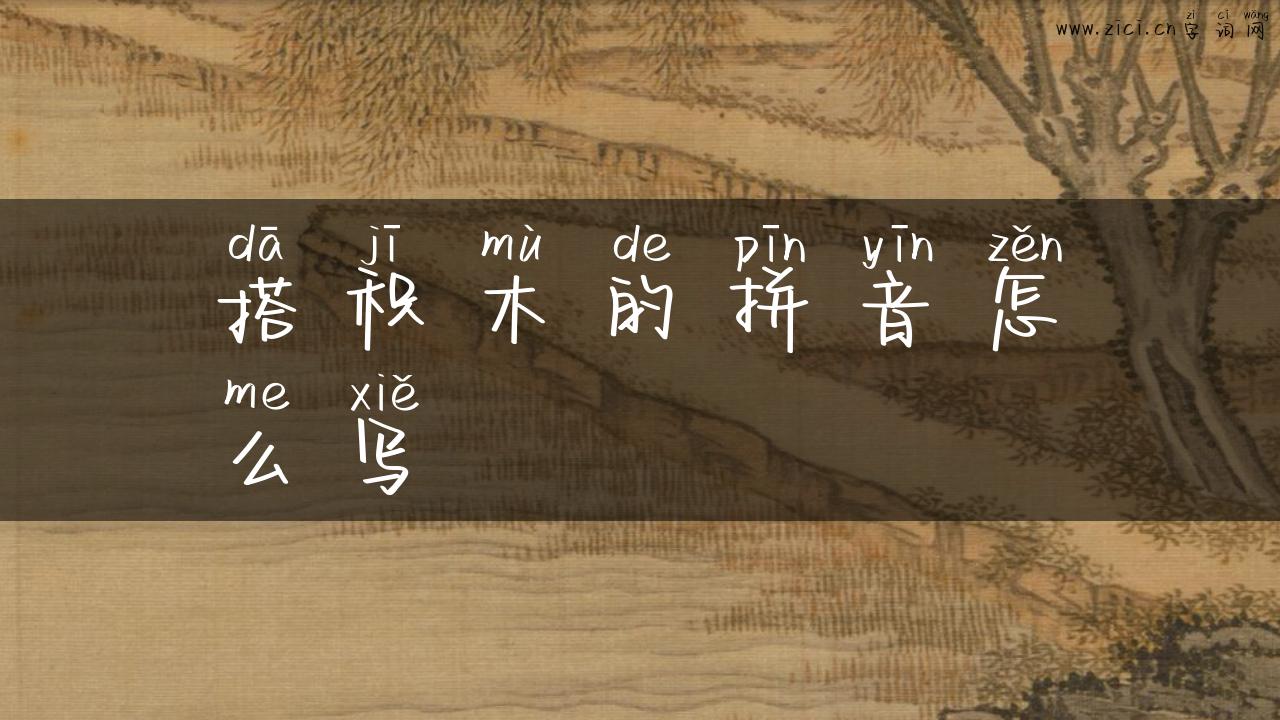 zì cí wǎng
www.zici.cn字词网
dā jī mù de pīn yīn zěn
搭积木的拼音怎
me xiě
么写